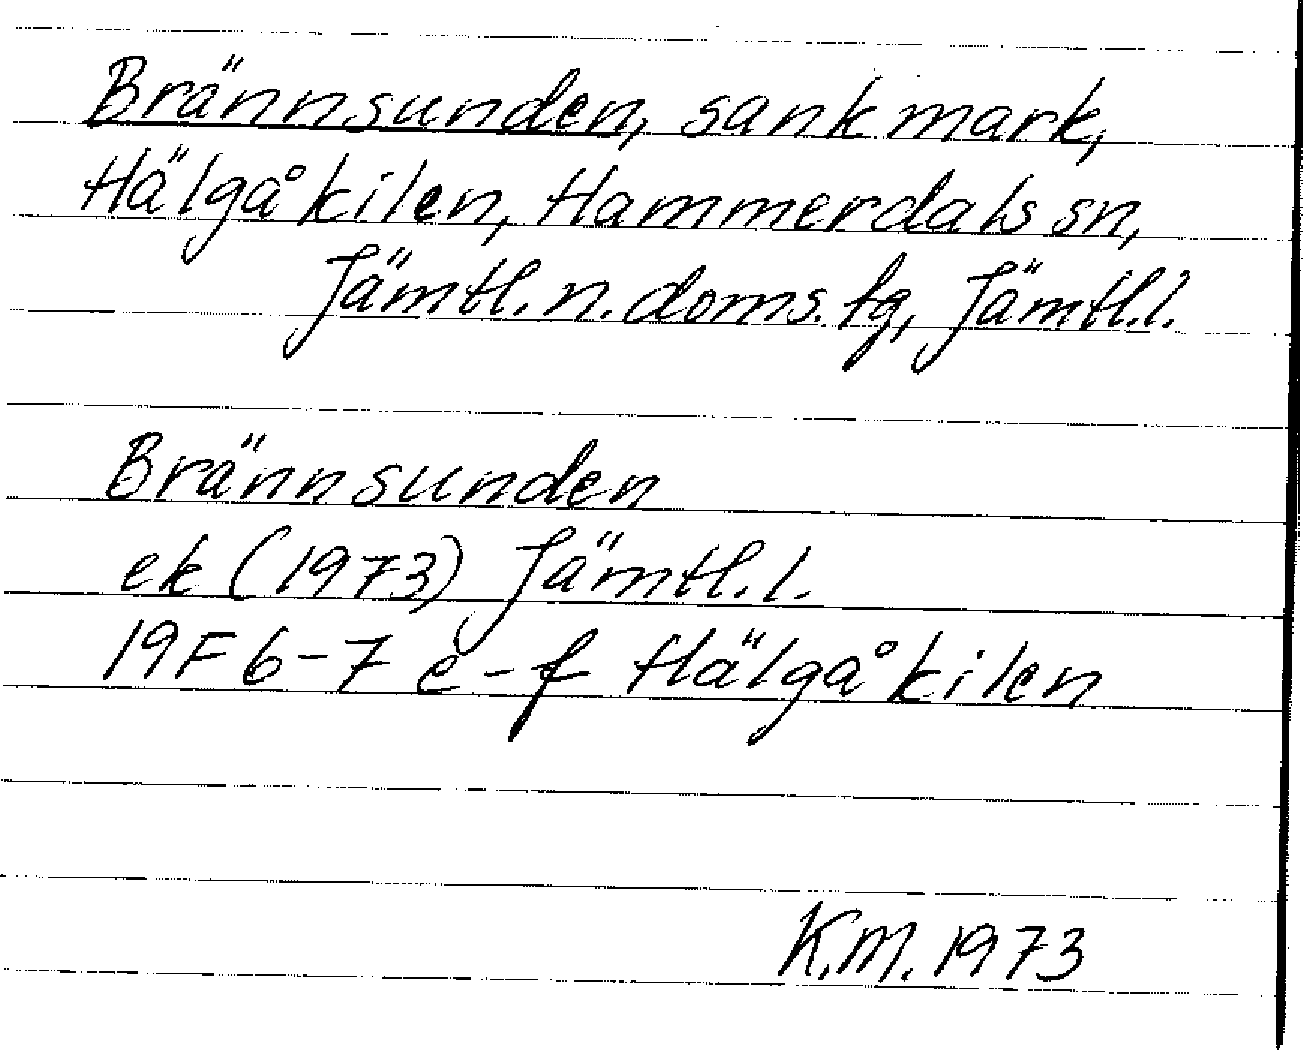 Brännsunden, sank mark,
Hälgåkilen, Hammerdals sn,
Jämtl. n. doms. tg, Jämtl.l.
Brännsunden
ek (1973) Jämtl.l.
19F 6-7 e-f Hälgåkilen
K.M. 1973